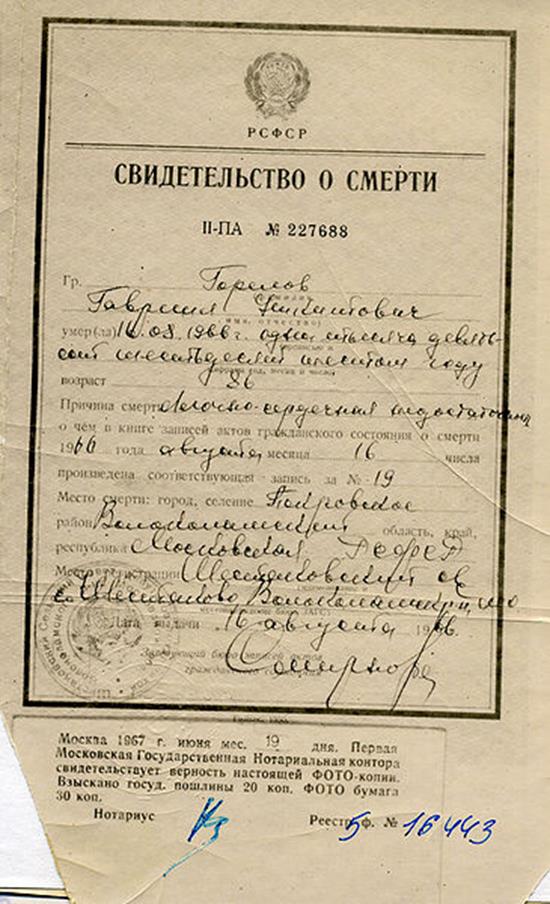 РСФСР
СВИДЕТЕЛЬСТВО О СМЕРТИ
II-ПА № 227688
Гр. Горелов
Гавриил Никитович
умер(ла) 16.08.1966 г. одна тысяча девять-
сот шестьдесят шестом году
возраст 86
Причина смерти Легочно-сердечная недостаточность
о чём в книге записей актов гражданского состояния о смерти
1966 года августа месяца 16 числа
произведена соответствующая запись за № 19
Место смерти: город, селение Покровское
район Волоколамский область, край,
республика Московская РСФСР
Место регистрации Шестаковский с/с
с. Шестаково, Волоколамский
Дата выдачи 16 августа 1966 г.
Заведующий бюро записей актов
гражданского состояния
Москва 1967 г. июня мес. 19 дня. Первая
Московская Государственная Нотариальная контора
свидетельствует верность настоящей ФОТО-копии.
Взыскано госуд. пошлины 20 коп. ФОТО бумага
30 коп.
Нотариус Реестр ф. № 5-16443